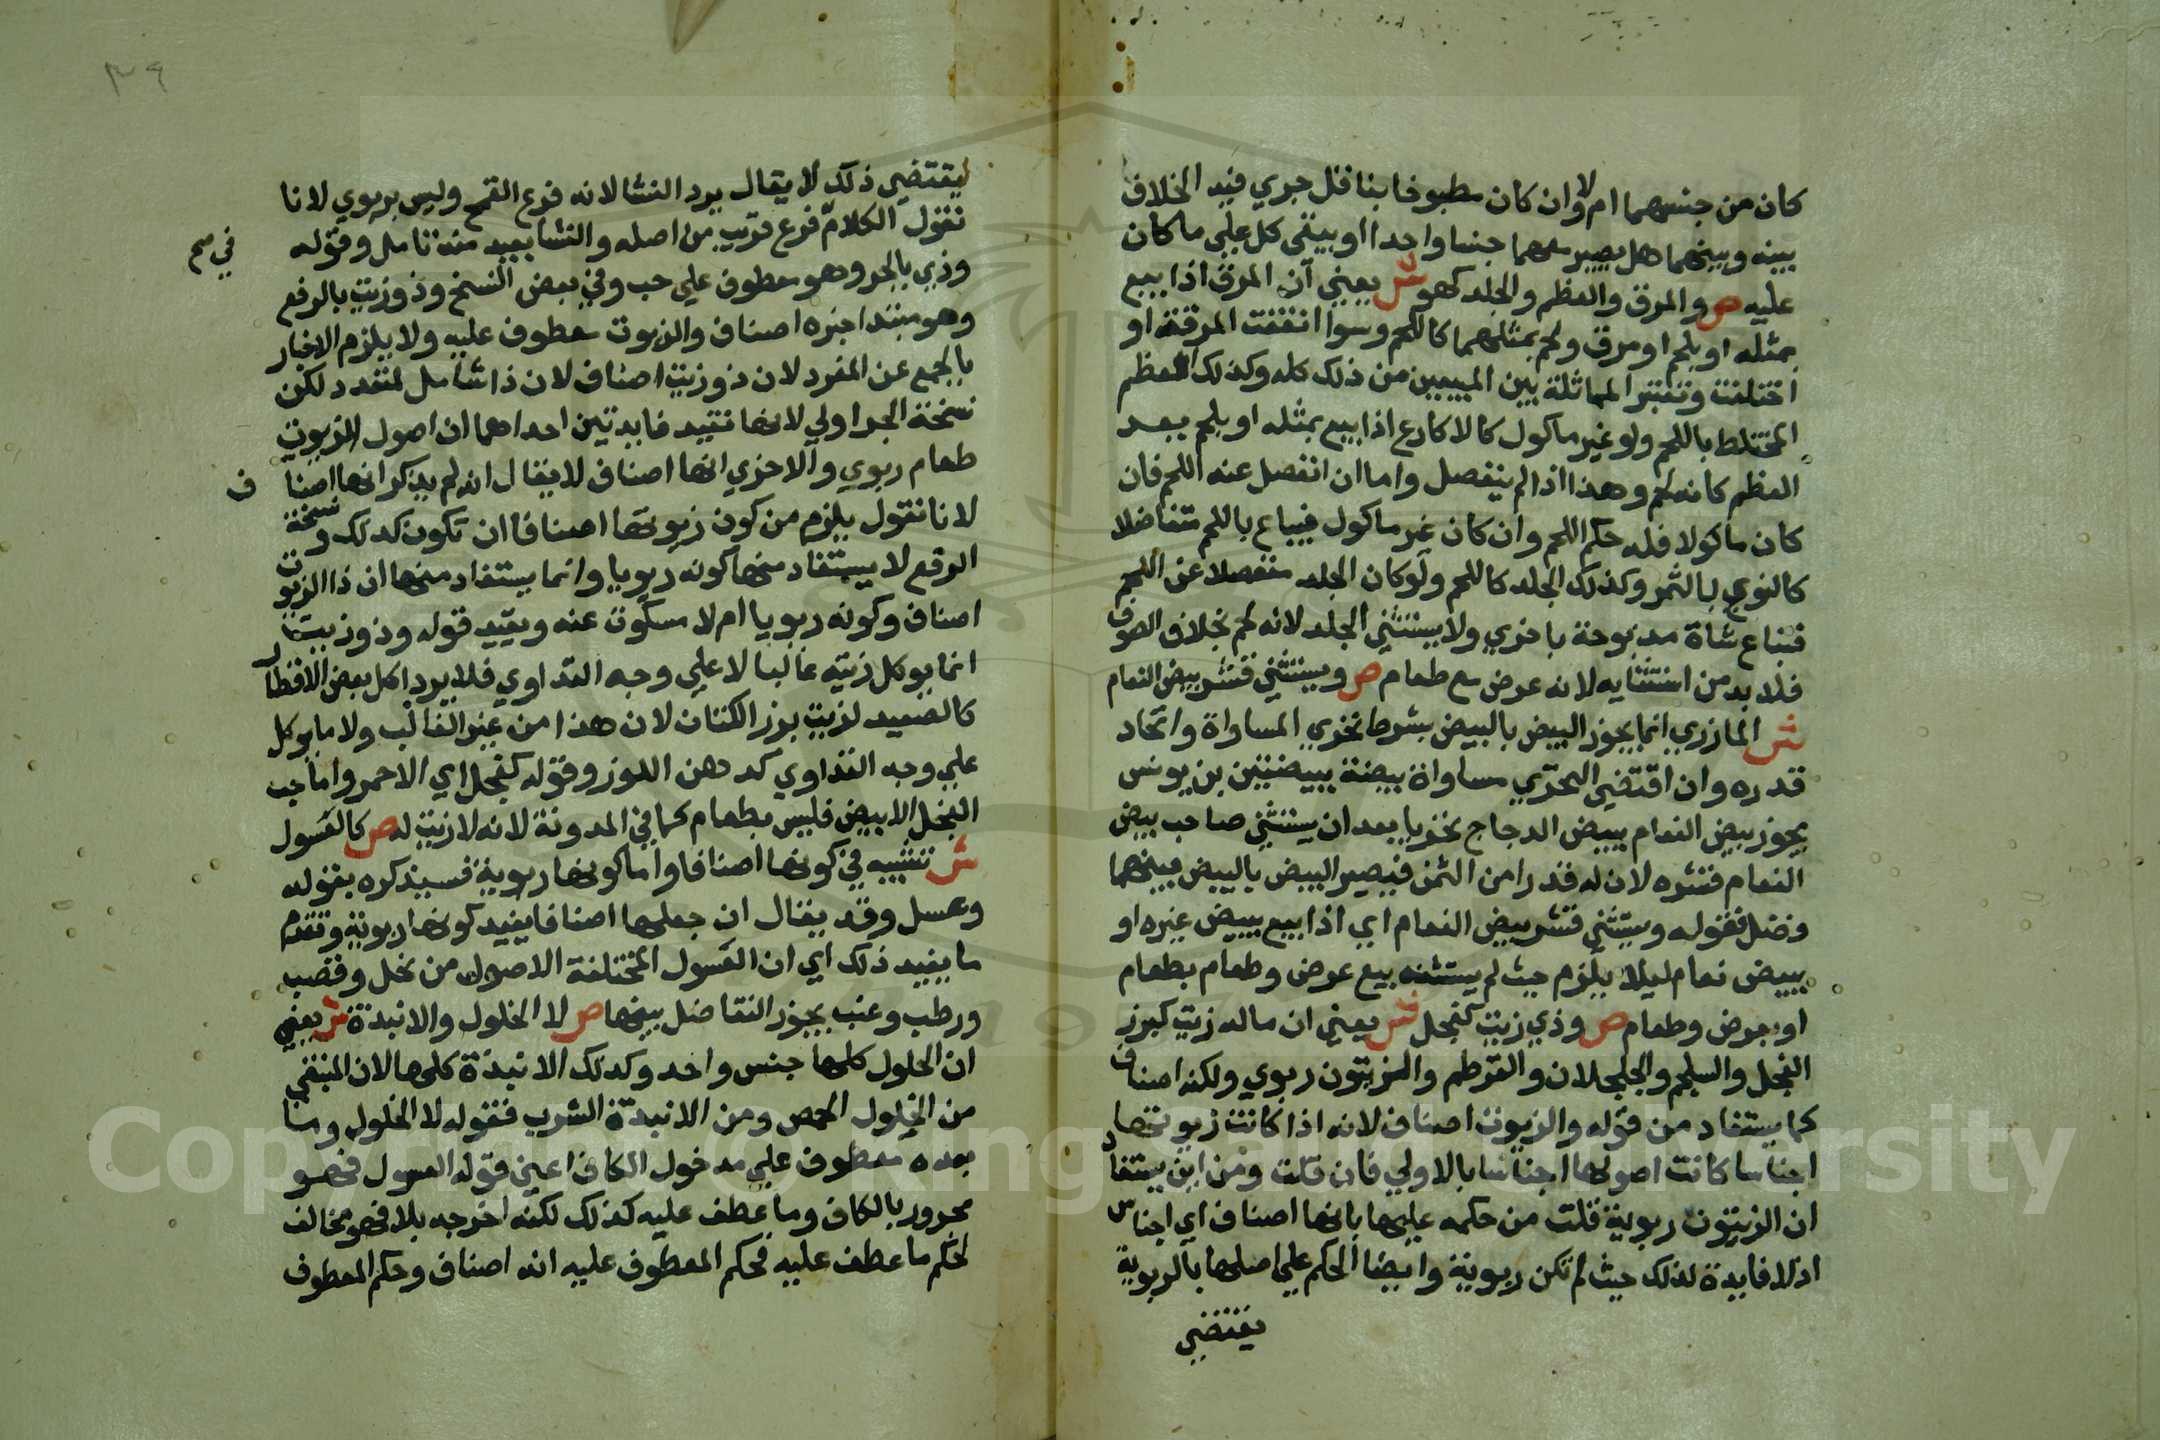 كان من جنسهما ام لا وان كان مطبوخا بناقل جري فيه الخلاف
بينه وبينهما هل يصير معهما جنسا واحدا او يبقى كل علي ما كان
عليه ص والمرق والعظم والجلد كهو ش يعني ان المرق اذا بيع
بمثله او بلحم او مرق ولحم بمثلهما كاللحم وسوا اتفقت المرقة او
اختلفت وتعتبر المماثلة بين المبيعين من ذلك كله وكذلك العظم
المختلط باللحم ولو غير ماكول كالاكارع اذا بيع بمثله او بلحم يعد
العظم كانه لحم وهذا اذا لم ينفصل واما ان انفصل عنه اللحم فان
كان ماكولا فله حكم اللحم وان كان غير ماكول فيباع باللحم متفاضلا
كالنوي بالتمر وكذلك الجلد كاللحم ولو كان الجلد منفصلا عن اللحم
فتباع شاة مذبوحة باخري ولا يستثني الجلد لانه لحم بخلاف الصوف
فلا بد من استثنايه لانه عرض مع طعام ص ويستثني قشر بيض النعام
ش المازري انما يجوز البيض بالبيض بشرط تحري المساواة واتحاد
قدره وان اقتضي التحري مساواة بيضة ببيضتين بن يونس
يجوز بيض النعام ببيض الدجاج تحريا بعد ان يستثني صاحب بيض
النعام قشره لان له قدرا من الثمن فيصير البيض بالبيض بينهما
وفضل فقوله ويستثني قشر بيض النعام اي اذا بيع ببيض غيره او
ببيض نعام ليلا يلزم حيث لم يستثنه بيع عرض وطعام بطعام
او بعرض وطعام ص وذي زيت كفجل ش يعني ان ماله زيت كبزر
الفجل والسلجم والجلجلان والقرطم والزيتون ربوي ولكنه اصناف
كما يستفاد من قوله والزيوت اصناف لانه اذا كانت زيوتها
اجناسا كانت اصولها اجناسا بالاولي فان قلت ومن اين يستفاد
ان الزيتون ربوية قلت من حكمه عليها بانها اصناف اي اجناس
اذ لا فايدة لذلك حيث لم تكن ربوية وايضا الحكم علي اصلها بالربوية
يقتضي
٣٩
يقتضي ذلك لا يقال يرد النشا لانه فرع القمح وليس بربوي لانا
نقول الكلام فرع قريب من اصله والنشا بعيد منه تامل وقوله
في صح
وذي بالجر وهو معطوف علي حب وفي بعض النسخ وذو زيت بالرفع
وهو مبتدا خبره اصناف والزيوت معطوف عليه ولا يلزم الاخبار
بالجمع عن المفرد لان ذو زيت اصناف لان ذا شامل لمتعدد لكن
نسخة الجر اولي لانها تفيد فايدتين احداهما ان اصول الزيوت
طعام ربوي والاخري انها اصناف لا يقال انه لم يذكر انها اصنا
ف
لانا نقول يلزم من كون زيوتها اصنافا ان تكون كذلك ونسخة
الرفع لا يستفاد منها كونه ربويا وانما يستفاد منها ان ذا الزيوت
اصناف وكونه ربويا ام لا مسكوت عنه ويقيد قوله وذو زيت
انما يوكل زيته غالبا لا علي وجه التداوي فلا يرد اكل بعض الاقطار
كالصعيد لزيت بزر الكتان لان هذا من غير الغالب ولا ما يوكل
علي وجه التداوي كدهن اللوز وقوله كفجل اي الاحمر واما حب
الفجل الابيض فليس بطعام كما في المدونة لانه لا زيت له ص كالعسول
ش تشبيه في كونها اصنافا واما كونها ربوية فسيذكره بقوله
وعسل وقد يقال ان جعلها اصنافا يفيد كونها ربوية وتقدم
ما يفيد ذلك اي ان العسول المختلفة الاصول من نحل وقصب
ورطب وعنب يجوز التفاضل بينها ص لا الخلول والانبذة ش يعني
ان الخلول كلها جنس واحد وكذلك الانبذة كلها لان المبتغي
من الخلول الحمض ومن الانبذة الشرب فقوله لا الخلول وما
بعده معطوف علي مدخول الكاف اعني قوله العسول فهو
مجرور بالكاف وما عطف عليه كذلك لكنه اخرجه بلا فهو مخالف
لحكم ما عطف عليه فحكم المعطوف عليه انه اصناف وحكم المعطوف